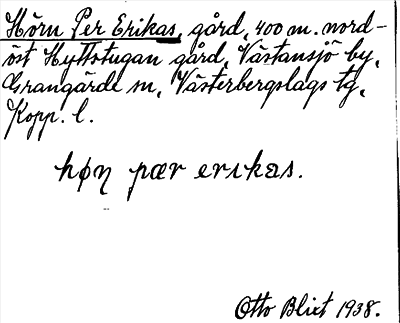 Hörn Per Erikas, gård, 400 m. nord-
öst Hyttstugan gård, Västansjö by,
Grangärde sn, Västerbergslags tg,
Kopp. l.
høη pær erɩkas.
Otto Blixt 1938.